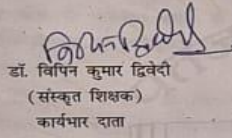 डॉ. विपिन कुमार द्विवेदी
(संस्कृत शिक्षक)
कार्यभार दाता